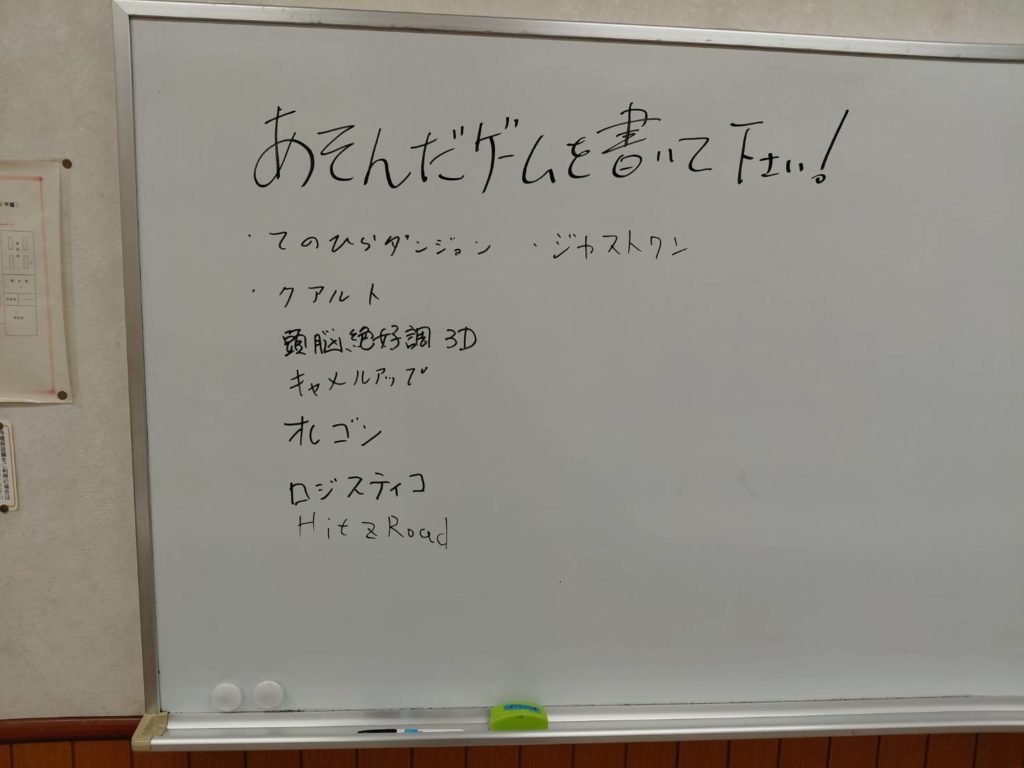 あそんだゲームを書いて下さい!
・てのひらダンジョン ・ジャストワン
・クアルト
頭脳絶好調 3D
キャメルアップ
オレゴン
ロジスティコ
Hit z Road